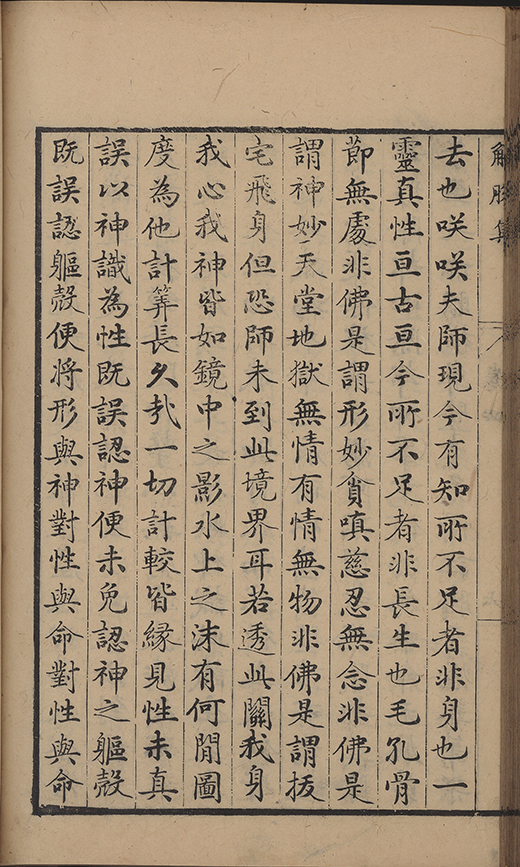 解脫集
去也咲咲夫師現今有知所不足者非身也一
靈真性亘古亘今所不足者非長生也毛孔骨
節無處非佛是謂形妙貪嗔慈忍無念非佛是
謂神妙天堂地獄無情有情無物非佛是謂拔
宅飛身但恐師未到此境界耳若透此關我身
我心我神皆如鏡中之影水上之沫有何閒圖
度為他計筭長久㢤一切計較皆緣見性未真
誤以神識為性既誤認神便未免認神之軀殼
既誤認軀殼便將形與神對性與命對性與命